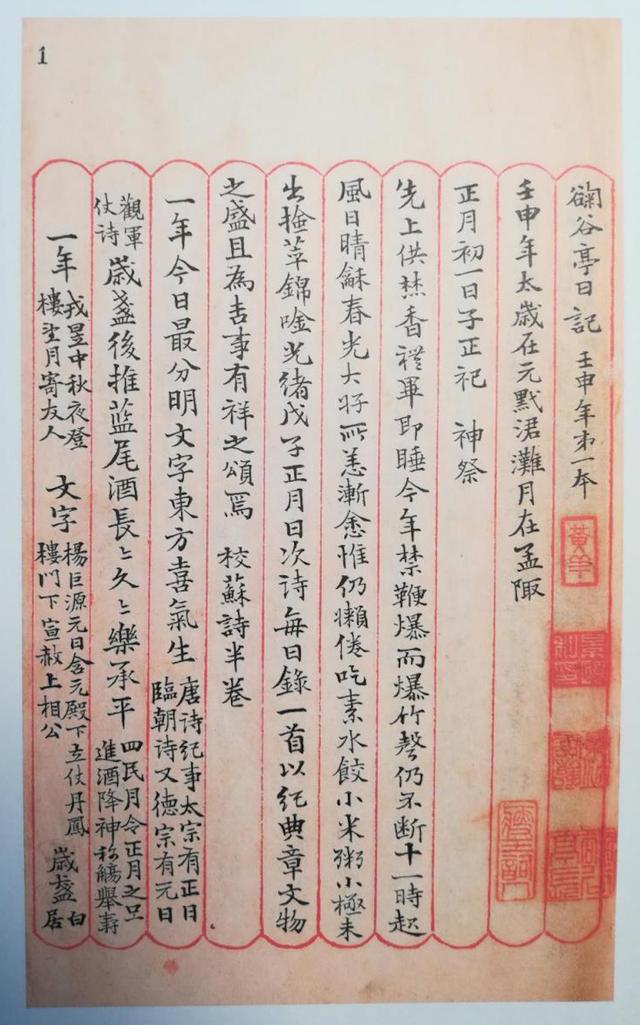 谷亭日記 壬申年弟一本
1
壬申年太歲在元默涒灘月在孟陬
正月初一日子正祀 神祭
先上供焚香禮畢即睡今年禁鞭爆而爆竹聲仍不斷十一時起
風日晴龢春光大好所恙漸愈惟仍懶倦吃素水餃小米粥小極未
出撿萃錦唫光緒戊子正月日次詩每日錄一首以紀典章文物
之盛且為吉事有祥之頌焉 校蘇詩半卷
一年今日最分明文字東方喜氣生 唐詩紀事太宗有正日臨朝詩又德宗有元日
觀軍仗詩 歲盞後推藍尾酒長〻久〻樂承平 四民月令正月之旦進酒降神称觴舉壽
一年 戎昱中秋夜澄樓望月寄友人 文字 楊巨源元日含元殿下立仗丹鳳樓門下宣赦上相公 歲盞 白居